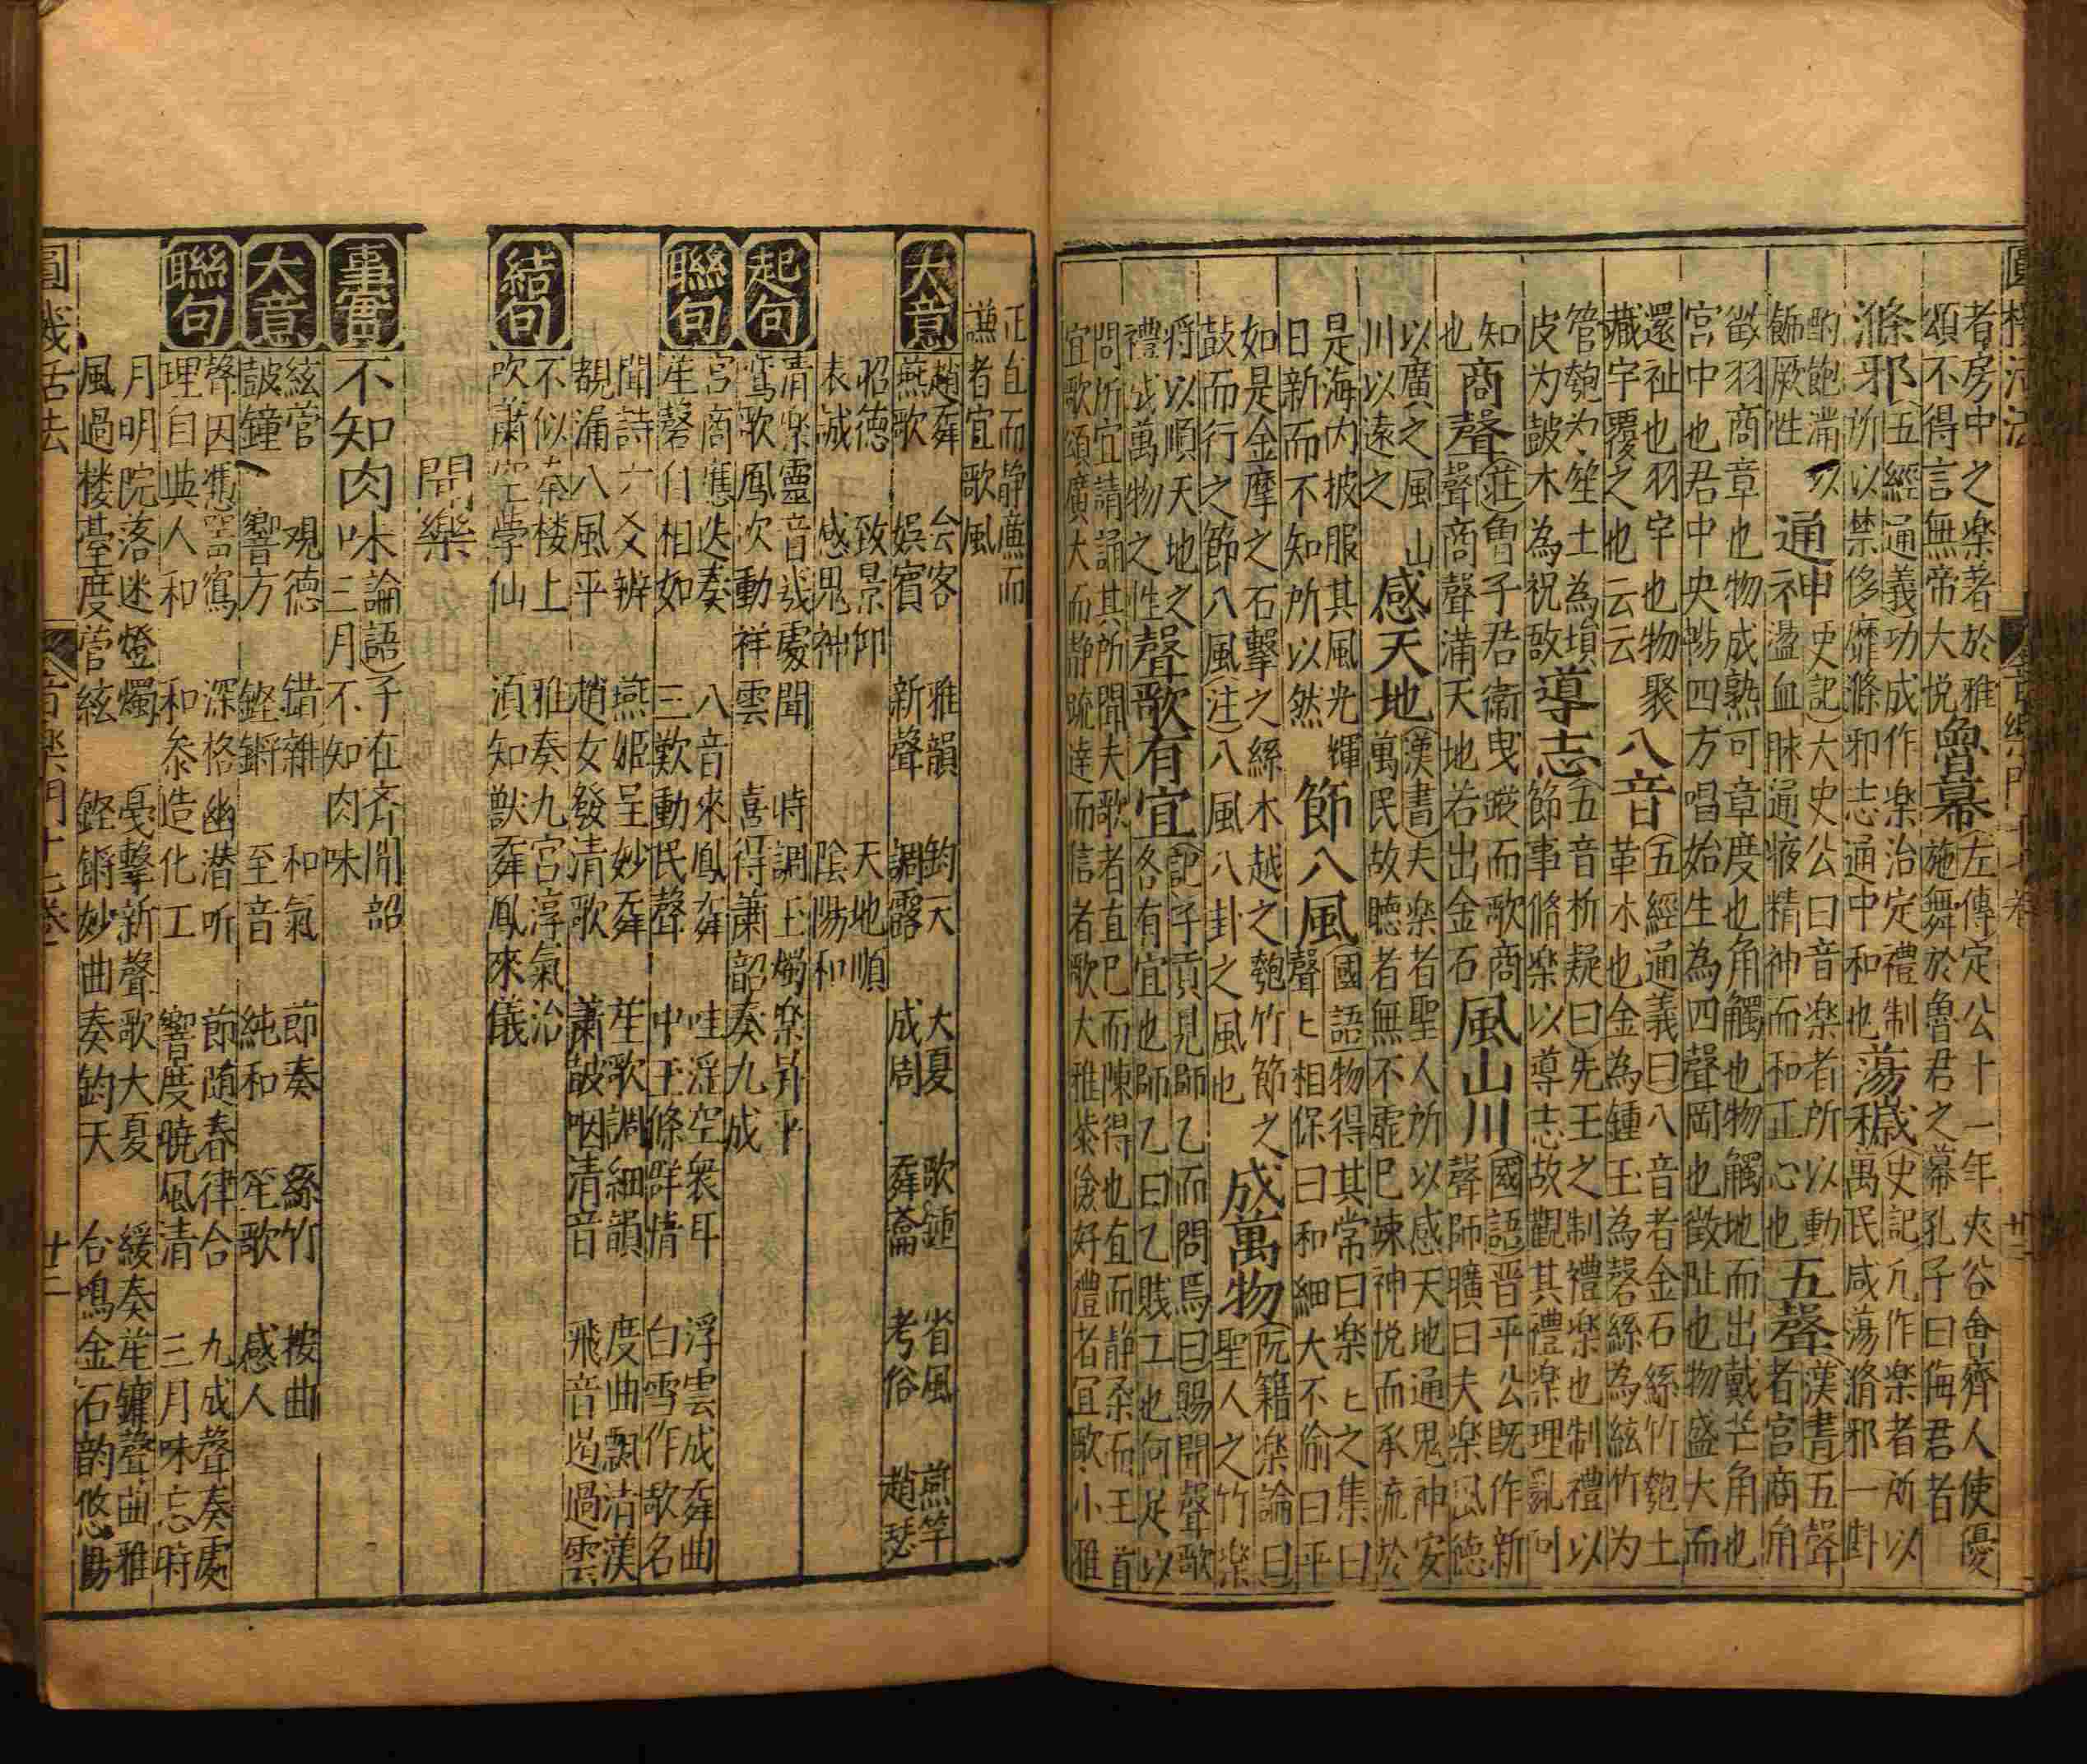 者房中之楽著於雅
頌不得言無帝大悦魯幕(左傳)定公十一年夾谷會齊人使優
施舞於魯君之幕孔子曰侮君者
滌邪(五經通義)功成作楽治定禮制
所以禁侈靡滌邪志通中和也蕩穢(史記)凢作楽者所以
萬民咸蕩滌邪一
酌飽滿以
飾厥性通神(史記)大史公曰音楽者所以動
不盪血脉通疲精神而和正心也五聲(漢書)五聲
者宮商角
徴羽商章也物成熟可章度也角觸也物觸地而出戴芒角也
宮中也君中央暢四方唱始生為四聲岡也徵阯也物盛大而
還祉也羽宇也物聚
藏宇覆之也云云八音(五經通義曰)八音者金石絲竹匏土
革木也金為鍾玉為磬絲為絃竹为
管匏为笙土為塤
皮为皷木為祝敔導志(五音析疑曰)先王之制禮楽也制禮以
節事脩楽以導志故觀其禮楽理亂可
知
也商聲(莊)魯子居衛曳蹤而歌商
聲商聲滿天地若出金石風山川(國語)晋平公既作新
聲師曠曰夫楽風德
以廣之風山
川以遠之感天地(漢書)夫楽者聖人所以感天地通鬼神安
萬民故聴者無不虛巳竦神悦而承流於
是海内披服其風光輝
日新而不知所以然節八風(國語)物得其常曰楽ヒ之集曰
聲ヒ相保曰和細大不偷曰平
如是金摩之石擊之絲木越之匏竹節之
鼓而行之節八風(注)八風八卦之風也成萬物(阮籍楽論曰)
聖人之竹楽
将以順天地之
禮成萬物之性聲歌有宜(記)子貢見師乙而問焉曰賜聞聲歌
各有宜也師乙曰乙賤工也何足以
問所宜請誦其所聞夫歌者直巳而陳得也直而静柔而王首
宜歌頌廣大而静䟽達而信者歌大雅恭儉好禮者宜歌小雅
正直而静亷而
謙者宜歌風
大意
趙舞 会客 雅韻 鈞天 大夏 歌鍾 省風 燕竽
燕歌 娯賓 新聲 調露 成周 舞籥 考俗 趙瑟
昭徳 致景仰 天地順
表誠 感鬼神 陰陽和
起句
清楽靈音幾處聞 時調玉燭楽昇平
鸞歌鳳次動祥雲 喜得蕭韶奏九成
聯句
宮商應迭奏 八音來鳳舞 哇淫空衆耳 浮雲成舞曲
笙磬自相如 三歎動民聲 中王條群情 白雪作歌名
聞詩六爻辨 燕姫呈妙舞 笙歌調細韻 度曲飄清漢
覩滿八風平 趙女發清歌 蕭皷咽清音 飛音遏過雲
結句
不似秦楼上 雅奏九宮淳氣治
吹蕭空学仙 湏知獣舞鳳來儀
聞楽
事實
不知肉味(論語)子在齊聞韶
三月不知肉味
大意
絃管 観德 錯雜 和氣 節奏 絲竹 按曲
皷鐘 響方 鏗鏘 至音 純和 笙歌 感人
聯句
聲因應谷寫 深格幽潜听 節随春律合 九成聲奏處
理自典人和 和叅造化工 響度曉風清 三月味忘時
月明院落迷燈燭 戞擊新聲歌大夏 緩奏笙鏞聲曲雅
風過楼臺度管絃 鏗鏘妙曲奏鈞天 合鳴金石韵悠昜